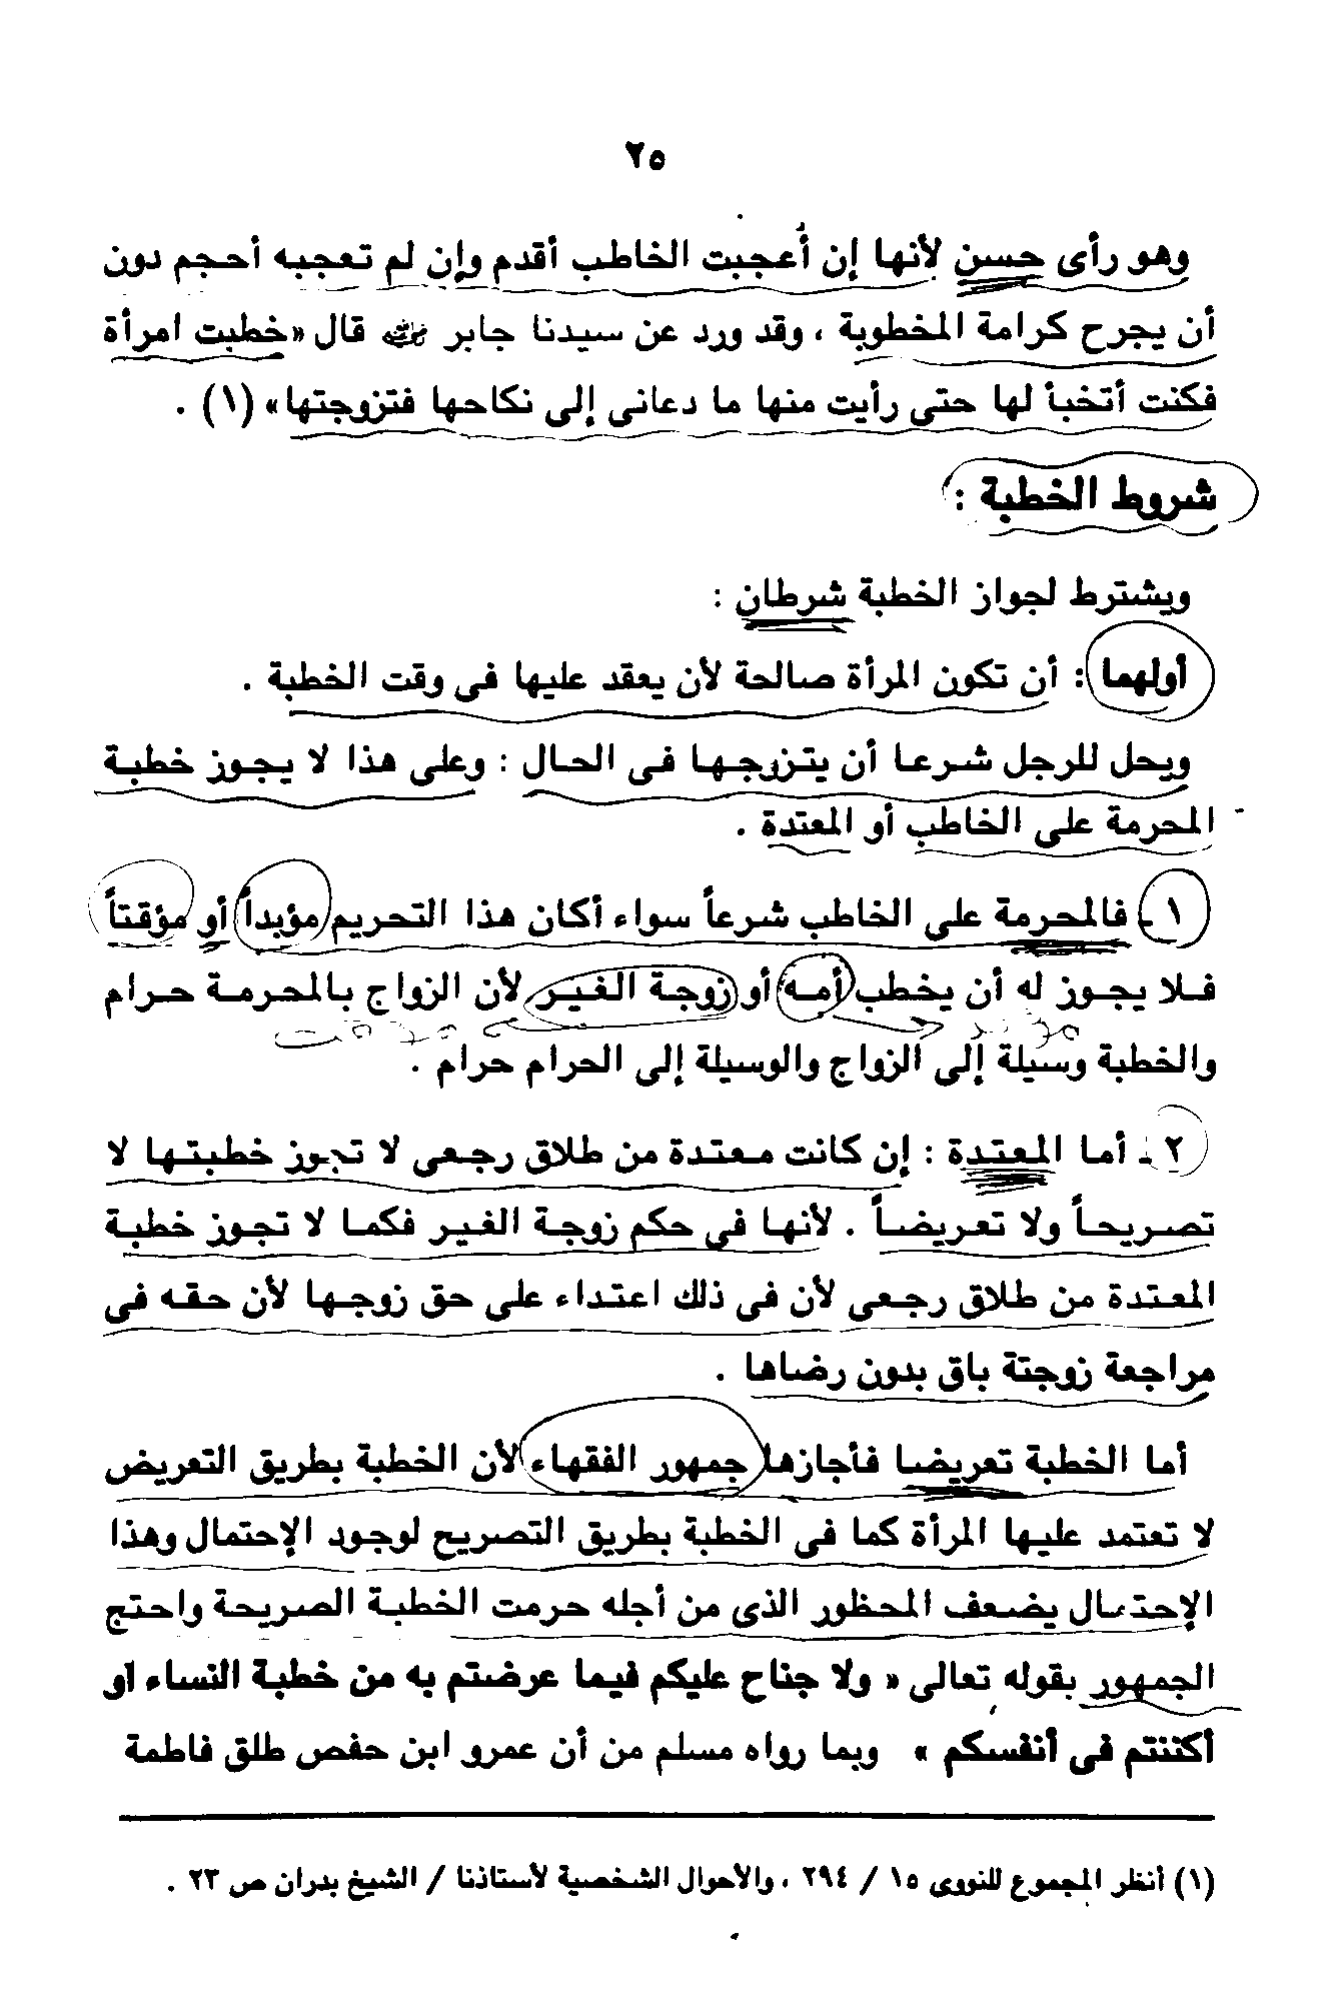 ٢٥
وهو رأى حسن لأنها إن أُعجبت الخاطب أقدم وإن لم تعجبه أحجم دون
أن يجرح كرامة المخطوبة ، وقد ورد عن سيدنا جابر رضي الله عنه قال «خطبت امرأة
فكنت أتخبأ لها حتى رأيت منها ما دعانى إلى نكاحها فتزوجتها» (١) .
شروط الخطبة :
ويشترط لجواز الخطبة شرطان :
أولهما : أن تكون المرأة صالحة لأن يعقد عليها فى وقت الخطبة .
ويحل للرجل شرعا أن يتزرجها فى الحال : وعلى هذا لا يجوز خطبة
المحرمة على الخاطب أو المعتدة .
١ـ فالمحرمة على الخاطب شرعاً سواء أكان هذا التحريم مؤبداً أو مؤقتاً
فلا يجوز له أن يخطب أمه أو زوجة الغير لأن الزواج بالمحرمة حرام
مؤبد مؤقت
والخطبة وسيلة إلى الزواج والوسيلة إلى الحرام حرام .
٢ـ أما المعتدة : إن كانت معتدة من طلاق رجعى لا تجوز خطبتها لا
تصريحاً ولا تعريضاً . لأنها فى حكم زوجة الغير فكما لا تجوز خطبة
المعتدة من طلاق رجعى لأن فى ذلك اعتداء على حق زوجها لأن حقه فى
مراجعة زوجتة باق بدون رضاها .
أما الخطبة تعريضا فأجازها جمهور الفقهاء لأن الخطبة بطريق التعريض
لا تعتمد عليها المرأة كما فى الخطبة بطريق التصريح لوجود الإحتمال وهذا
الإحتمال يضعف المحظور الذى من أجله حرمت الخطبة الصريحة واحتج
الجمهور بقوله تعالى « ولا جناح عليكم فيما عرضتم به من خطبة النساء او
أكننتم فى أنفسكم » وبما رواه مسلم من أن عمرو ابن حفص طلق فاطمة
(١) أنظر المجموع للنووى ١٥ / ٢٩٤ ، والأحوال الشخصية لأستاذنا / الشيخ بدران ص ٢٣ .